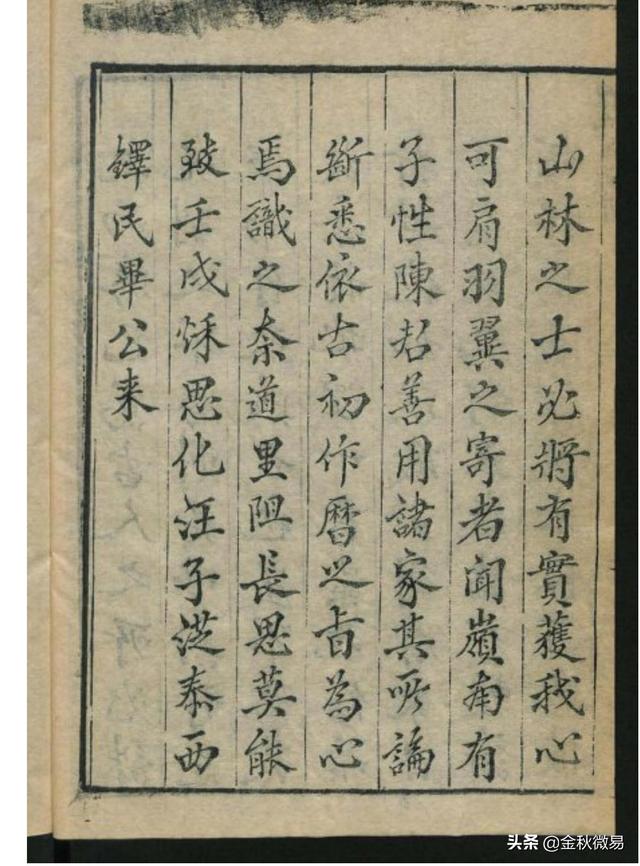 山林之士必將有實獲我心
可肩羽翼之寄者聞嶺南有
子性陳君善用諸家其所論
斷悉依古初作曆之旨為心
焉識之奈道里阻長思莫能
致壬戌秋思化汪子從泰西
鐸民畢公来
头条 @金秋微易